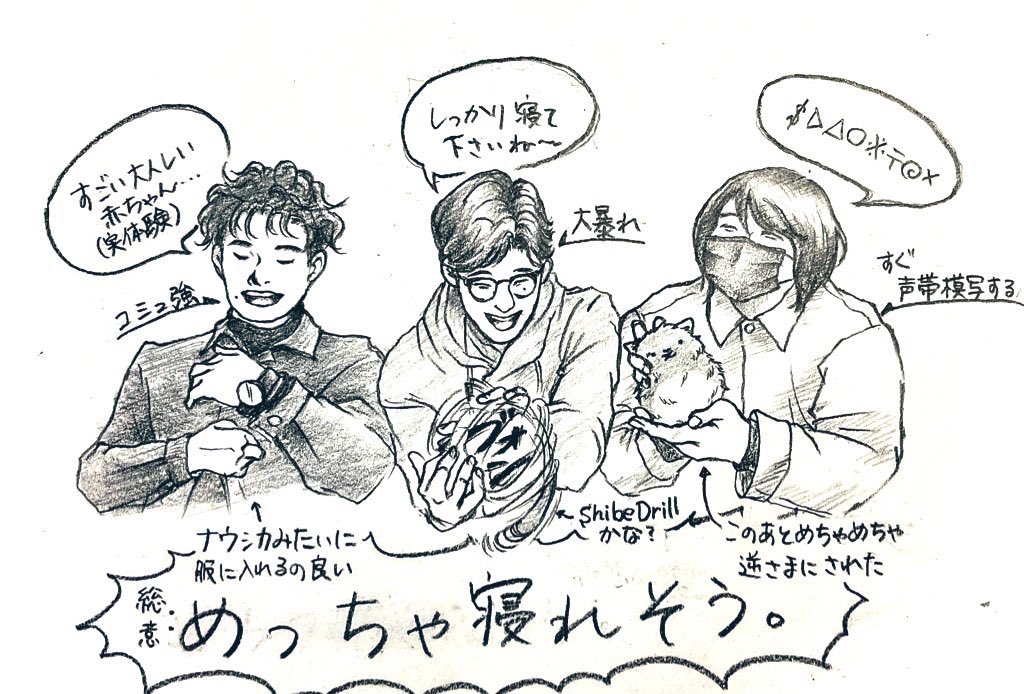 すごい大人しい
赤ちゃん…
(実体験)
コミュ強
しっかり寝て
下さいね〜
大暴れ
$△△○※〒@×
すぐ
声帯模写する
フォン
ナウシカみたいに
服に入れるの良い
ShibeDrill
かな?
このあとめちゃめちゃ
逆さまにされた
総意:
めっちゃ寝れそう。